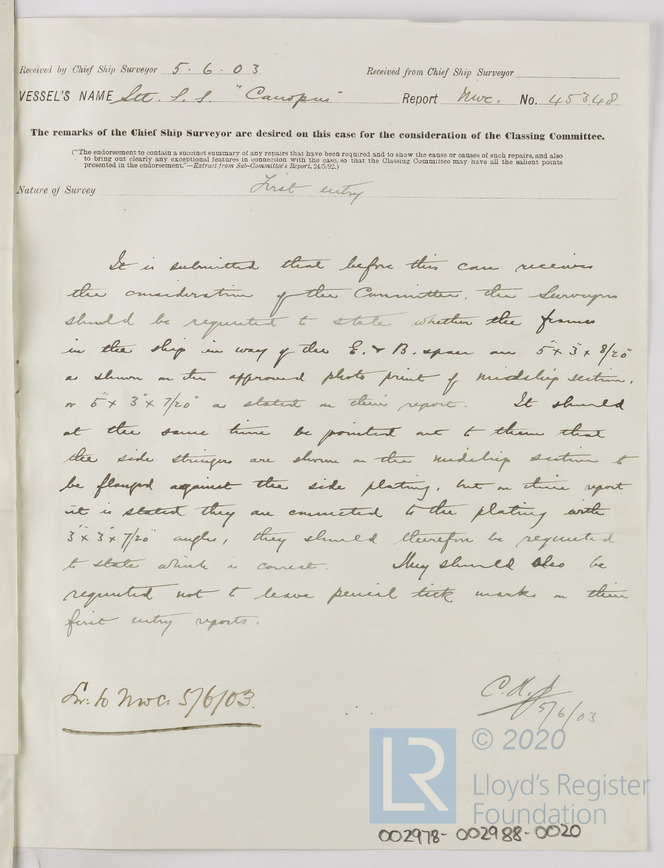 Received by Chief Ship Surveyor 5.6.03 Received from Chief Ship Surveyor
VESSEL'S NAME Stl. S.S. "Canopus" Report Nwc. No. 45348
The remarks of the Chief Ship Surveyor are desired on this case for the consideration of the Classing Committee.
("The endorsement to contain a succinct summary of any repairs that have been required and to show the cause or causes of such repairs, and also
to bring out clearly any exceptional features in connection with the case, so that the Classing Committee may have all the salient points
presented in the endorsement."—Extract from Sub-Committee's Report, 24/5/92.)
Nature of Survey First entry
It is submitted that before this case receives
the consideration of the Committee, the Surveyors
should be requested to state whether the frames
in the ship in way of the E. & B. space are 5" x 3" x 8/20"
as shown on the approved photo print of midship section,
or 5" x 3" x 7/20" as stated on their report. It should
at the same time be pointed out to them that
the side stringers are shown on the midship section to
be flanged against the side plating, but on their report
it is stated they are connected to the plating with
3" x 3" x 7/20" angles, they should therefore be requested
to state which is correct. They should also be
requested not to leave pencil tick marks on their
first entry reports.
to Nwc. 5/6/03.
5/6/03
© 2020
LR
Lloyd's Register
Foundation
002978-002988-0020